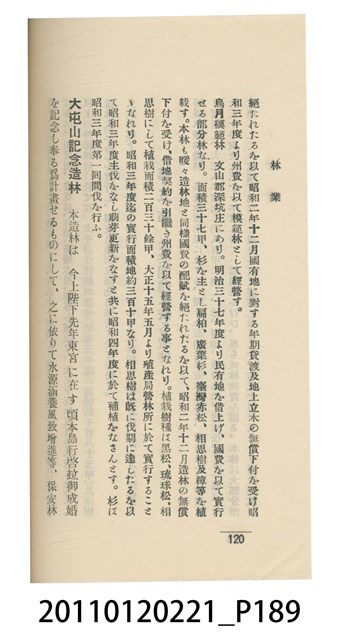 林業
絕たれたるを以て昭和二年十二月國有地に對する年期貸渡及地上立木の無償下付を受け昭
和三年度より州費を以て模範林として經營す。
烏月模範林 文山郡深坑庄にあり。明治三十七年度より民有地を借上げ、國費を以て實行
せる部分林なり。面積三十七甲、杉を主とし扁柏、廣葉杉、臺灣赤松、相思樹及樟等を植
栽す。本林も曖々造林地と同樣國費の配賦を絕たれたるを以て、昭和二年十二月造林の無償
下付を受け、借地契約を引繼き州費を以て經營する事となれり。植栽樹種は黑松、琉球松、相
思樹にして植栽面積二百三十餘甲、大正十五年五月より殖產局營林所に於て實行すること
ゝなれり。昭和三年度迄の實行面積地約三百十甲なり。相思樹は旣に伐期に達したるを以
て昭和三年度主伐をなし萠芽更新をなすと共に昭和四年度に於て補植をなさんとす。杉は
昭和三年度第一回間伐を行ふ。
大屯山記念造林 本造林は 今上陛下先年東宮に在す頃本島行啓竝御成婚
を記念し奉る爲計畫せるものにして、之に依りて水源涵養風致增進等、保安林
120
20110120221_P189